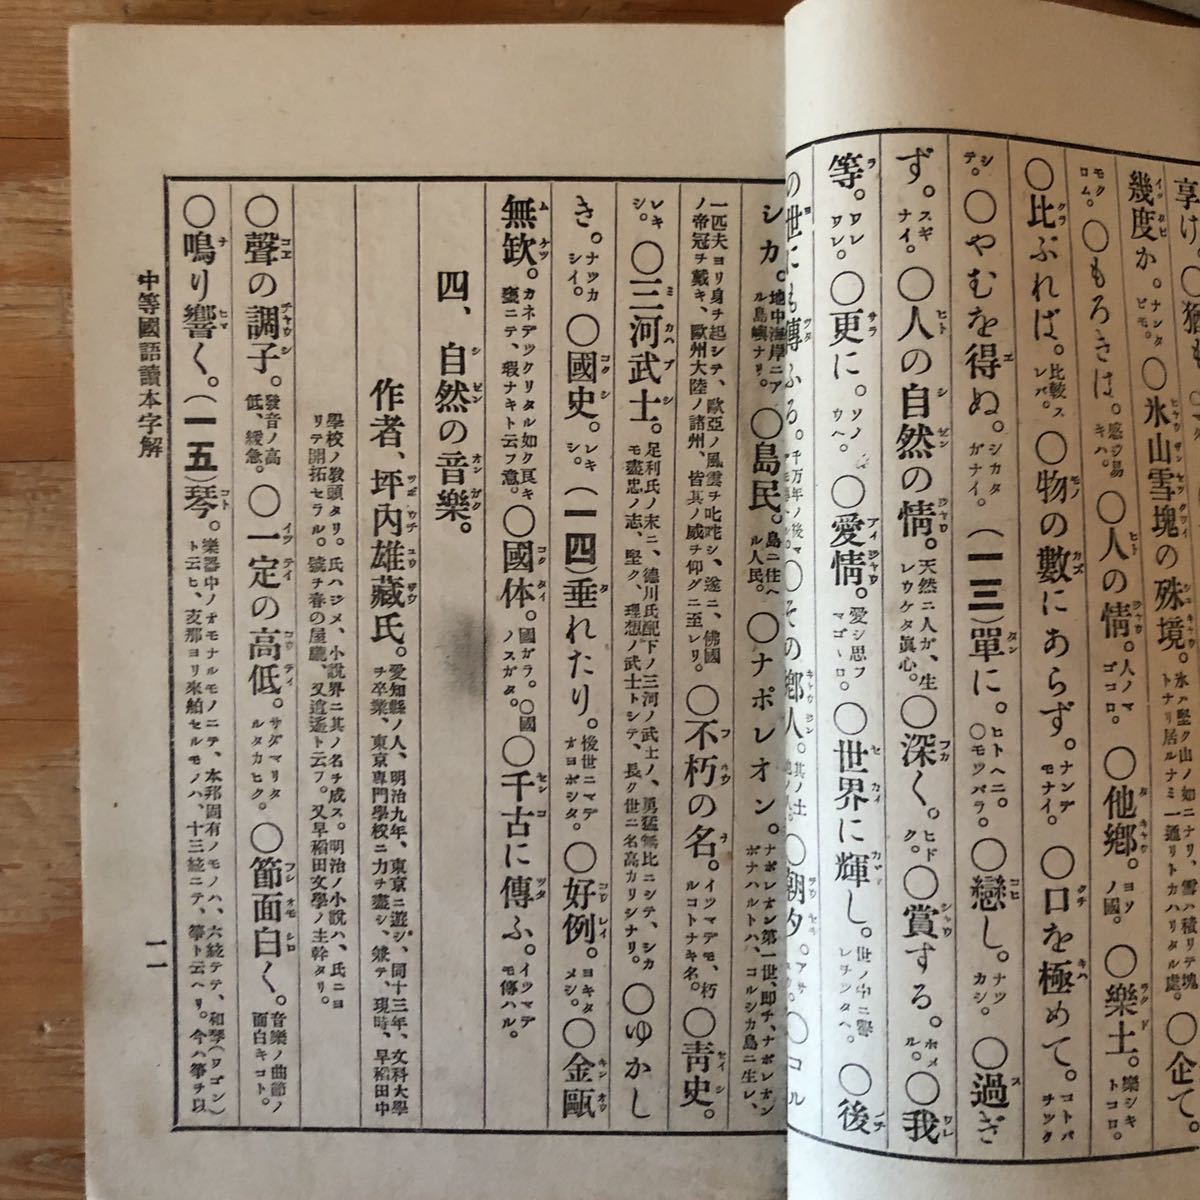 享け。○猶も
幾度か。ナンタビモ。○氷山雪塊の殊境。氷ハ堅ク山ノ如ニナリ、雪ハ積リテ塊トナリ居ルナミ一通リトカハリタル處。○企て。
モクロム。○もろきは。感ジ易キハ。○人の情。人ノマゴコロ。○他鄕。ヨソノ國。○樂土。樂シキトコロ。
○比ぶれば。比較スレバ。○物の數にあらず。ナンデモナイ。○口を極めて。コトバチツク
シテ。○やむを得ぬ。シカタガナイ。(一三)單に。ヒトヘニ。○モツパラ。○戀し。ナツカシ。○過ぎ
ず。スギナイ。○人の自然の情。天然ニ人ガ、生レウケタ眞心。○深く。ヒドク。○賞する。ホメル。○我
等。ワレワレ。○更に。ソノウヘ。○愛情。愛シ思フマゴヽロ。○世界に輝し。世ノ中ニ響レチンタヘ。○後
の世にも傳ふる。千万年ノ後マ ○その鄕人。其ノ土 ○朝夕。アサ ○コル
シカ。地中海岸ニアル島嶼ナリ。○島民。島ニ住ヘル人民。○ナポレオン。ナポレオン第一世、即チ、ナポレオンボナハルトハ、コルシカ島ニ生レ、
一匹夫ヨリ身チ起シテ、歐亞ノ風雲チ叱咤シ、遂ニ、佛國ノ帝冠チ戴キ、歐州大陸ノ諸州、皆其ノ威チ仰グニ至レリ。○不朽の名。イツマデモ、朽ルコトナキ名。○靑史。
レキシ。○三河武士。足利氏ノ末ニ、德川氏配下ノ三河ノ武士ノ、勇猛無比ニシテ、シカモ盡忠ノ志、堅ク、理想ノ武士トシテ、長ク世ニ名高カリシナリ。○ゆかし
き。ナツカシイ。○國史。レキシ。(一四)垂れたり。後世ニマデオヨボシタ。○好例。ヨキタメシ。○金甌
無欽。カネデツクリタル如ク良キ甕ニテ、瑕ナキト云フ意。○國体。國ガラ。○國ノスガタ。○千古に傳ふ。イツマデモ傳ハル。
四、自然の音樂。
作者、坪內雄藏氏。愛知縣ノ人、明治九年、東京ニ遊ジ、同十三年、文科大學チ卒業、東京專門學校ニ力チ盡シ、兼テ、現時、早稻田中
學校ノ敎頭タリ。氏ハジメ、小說界ニ其ノ名チ成ス。明治ノ小說ハ、氏ニヨリテ開拓セラル。號チ春の屋朧、又逍遙ト云フ。又早稻田文學ノ主幹タリ。
○聲の調子。發音ノ高低、緩急。○一定の高低。サダマリタルタカヒク。○節面白く。音樂ノ曲節ノ面白キコト。
○鳴り響く。(一五)琴。樂器中ノオモナルモノニテ、本邦固有ノモノハ、六絃テテ、和琴(ワゴン)ト云ヒ、支那ヨリ來舶セルモノハ、十三絃ニテ、箏ト云ヘリ。今ハ箏チ以
中等國語讀本字解
一一